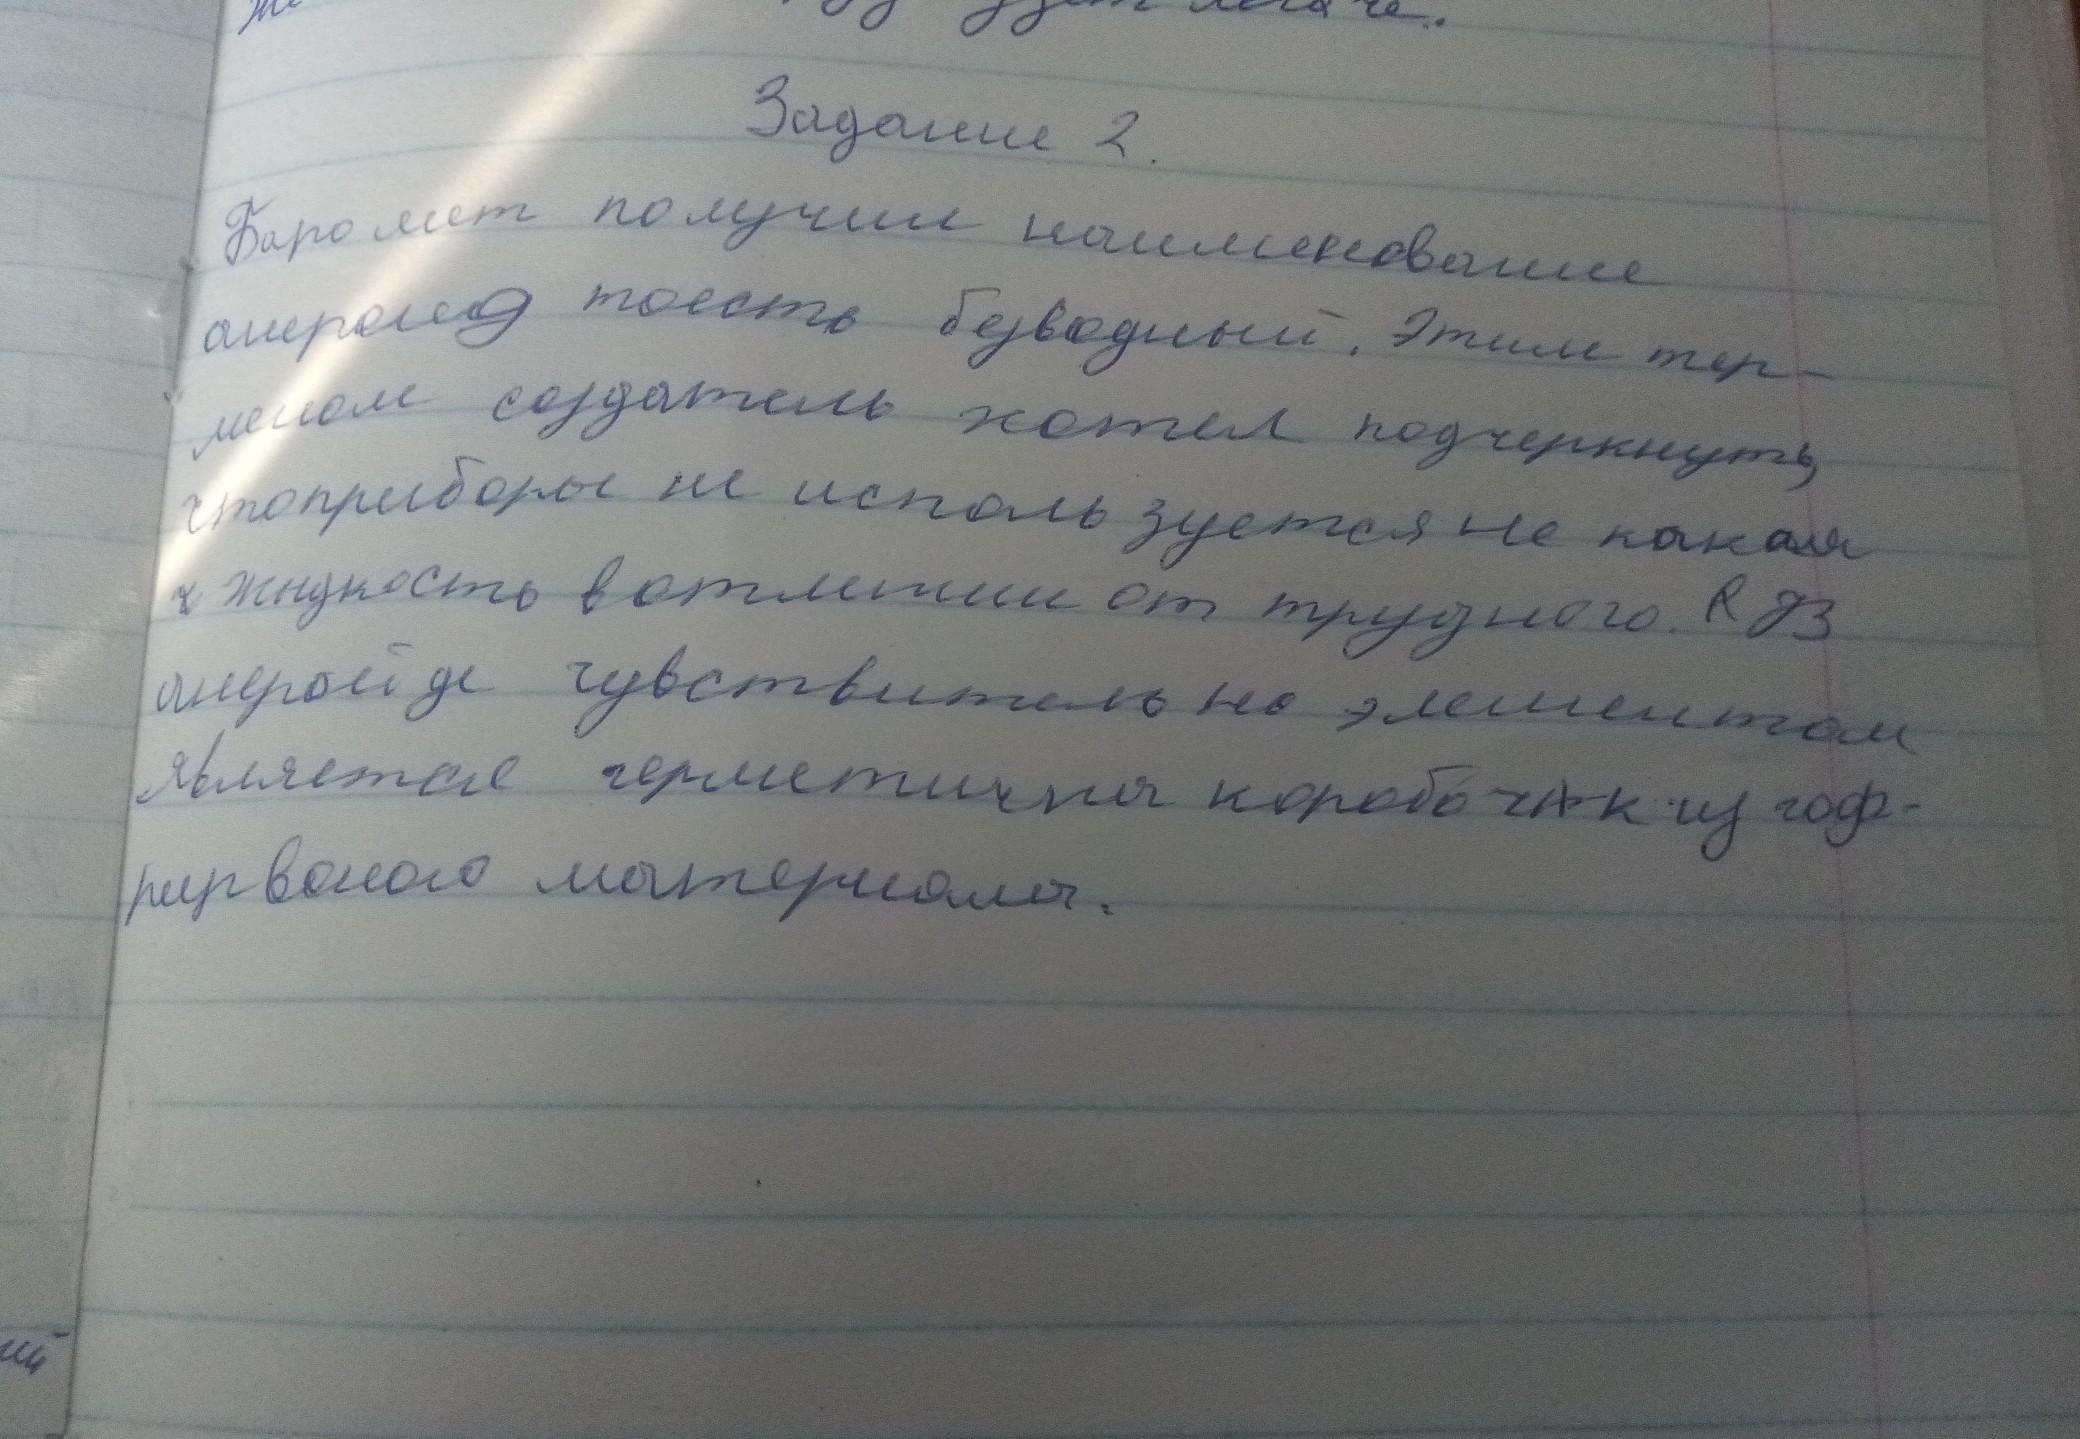 Же
Задание 2.
Баромет получил наименование
анероид тоесть безводный. Этим тер-
меном создатель хотел подчеркнуть,
чтоприборы не используется не какая
жидкость вотличии от трудного.
анеройде чувствительно элементом
является герметична коробочак из гоф-
рирваного материала.
ий